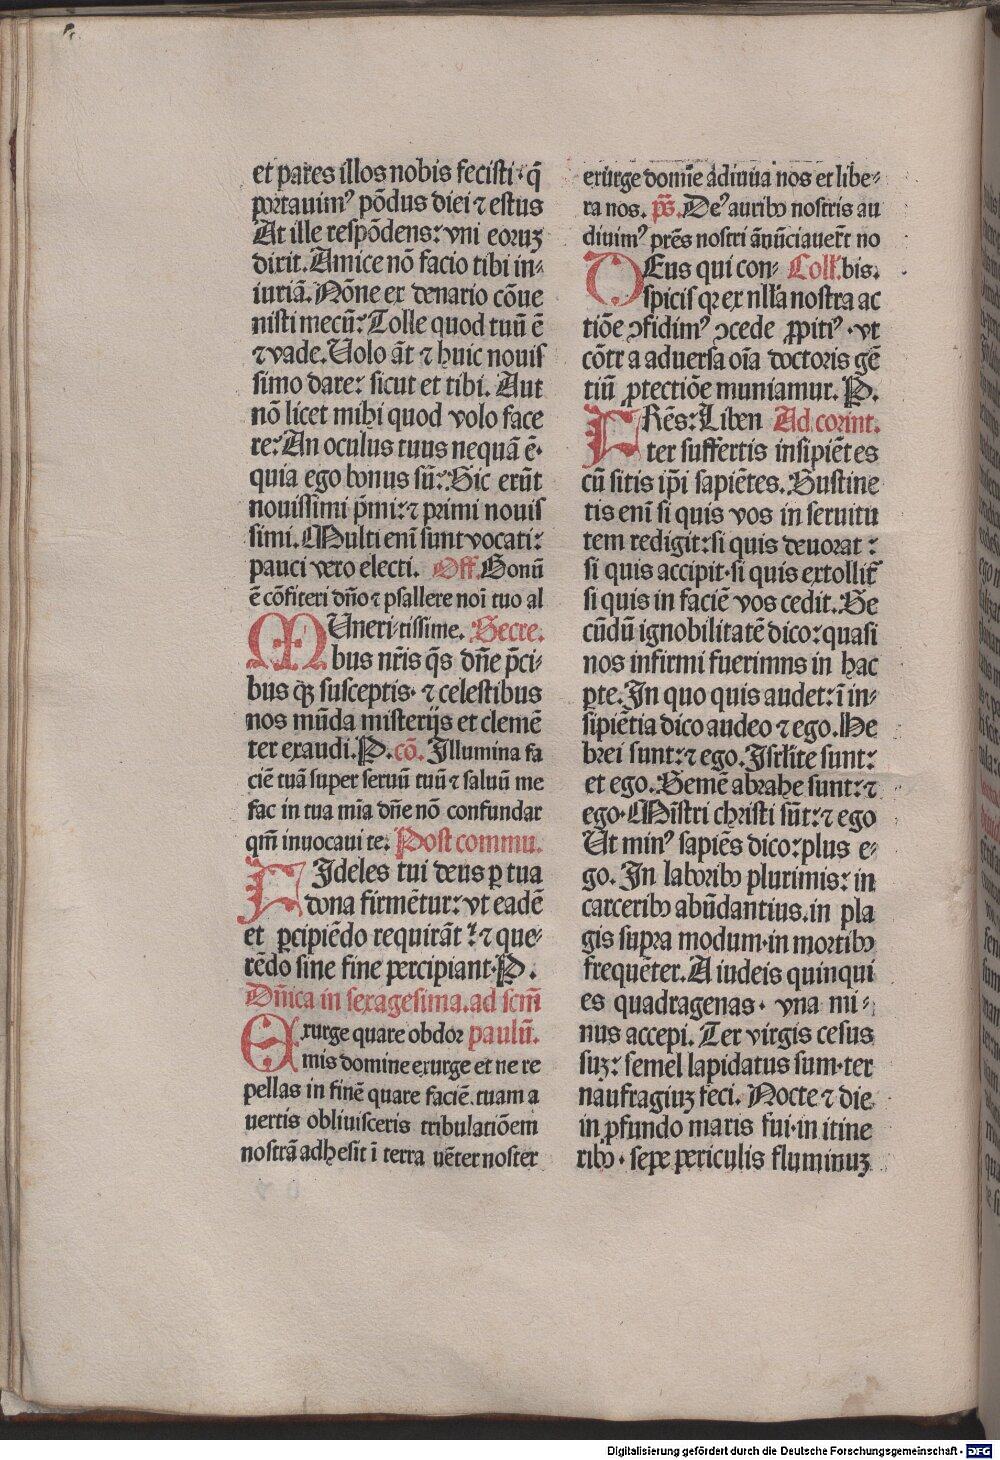 et pares illos nobis fecisti · q̄
portauimꝰ põdus diei ⁊ estus
At ille respõdens: vni eoruꝫ
dixit. Amice nõ facio tibi in-
iuriā. Nõne ex denario cõue
nisti mecū: Tolle quod tuū ē
⁊ vade. Uolo āt ⁊ huic nouis
simo dare: sicut et tibi. Aut
nõ licet mihi quod volo face
re: An oculus tuus nequā ē·
quia ego bonus sū: Sic erūt
nouissimi p̄mi: ⁊ primi nouis
simi. Multi enī sunt vocati:
pauci vero electi. Off. Bonū
ē cõfiteri dño ⁊ psallere noī tuo al
Uneri- tissime. Secre.
Mbus nr̄is q̄s dñe p̄ci-
bus qꝫ susceptis· ⁊ celestibus
nos mūda misterijs et clemē
ter exaudi. P. cõ. Illumina fa
ciē tuā super seruū tuū ⁊ saluū me
fac in tua mīa dñe nõ confundar
qm̄ inuocaui te: Post commu.
FIdeles tui deus ꝑ tua
dona firmētur: vt eadē
et ꝑcipiēdo requirāt: ⁊ que-
rēdo sine fine percipiant·P.
Dñica in sexagesima. ad scm̄
Exurge quare obdor paulū.
mis domine exurge et ne re
pellas in finē quare faciē tuam a
uertis obliuisceris tribulatiõem
nostrā adhesit ī terra uēter noster
exurge domīe adiuua nos et libe-
ra nos. p̄s. Deꝰ auribꝰ nostris au
diuimꝰ pr̄es nostri ānūciauer̄t no
DEus qui con- Coll. bis.
spicis qꝛ ex nlľa nostra ac
tiõe ↄfidimꝰ ↄcede ꝓpitiꝰ · vt
cõtr a aduersa oīa doctoris gē
tiū ꝓtectiõe muniamur. P.
FRēs: Liben Ad corint.
ter suffertis insipiētes
cū sitis ip̄i sapiētes. Sustine
tis enī si quis vos in seruitu
tem redigit: si quis deuorat :
si quis accipit· si quis extollit̄
si quis in faciē vos cedit. Se
cūdū ignobilitatē dico: quasi
nos infirmi fuerimns in hac
ꝑte. In quo quis audet: ī in-
sipiētia dico audeo ⁊ ego. He
brei sunt: ⁊ ego. Isrľite sunt:
et ego. Semē abrahe sunt: ⁊
ego· Mīstri christi sūt: ⁊ ego
Ut minꝰ sapiēs dico: plus e-
go. In laboribꝰ plurimis: in
carceribꝰ abūdantius. in pla
gis supra modum· in mortibꝰ
frequēter. A iudeis quinqui
es quadragenas · vna mi-
nus accepi. Ter virgis cesus
suꝫ: semel lapidatus sum· ter
naufragiuꝫ feci. Nocte ⁊ die
in ꝓfundo maris fui· in itine
ribꝰ · sepe periculis fluminuꝫ
Digitalisierung gefördert durch die Deutsche Forschungsgemeinschaft - DFG